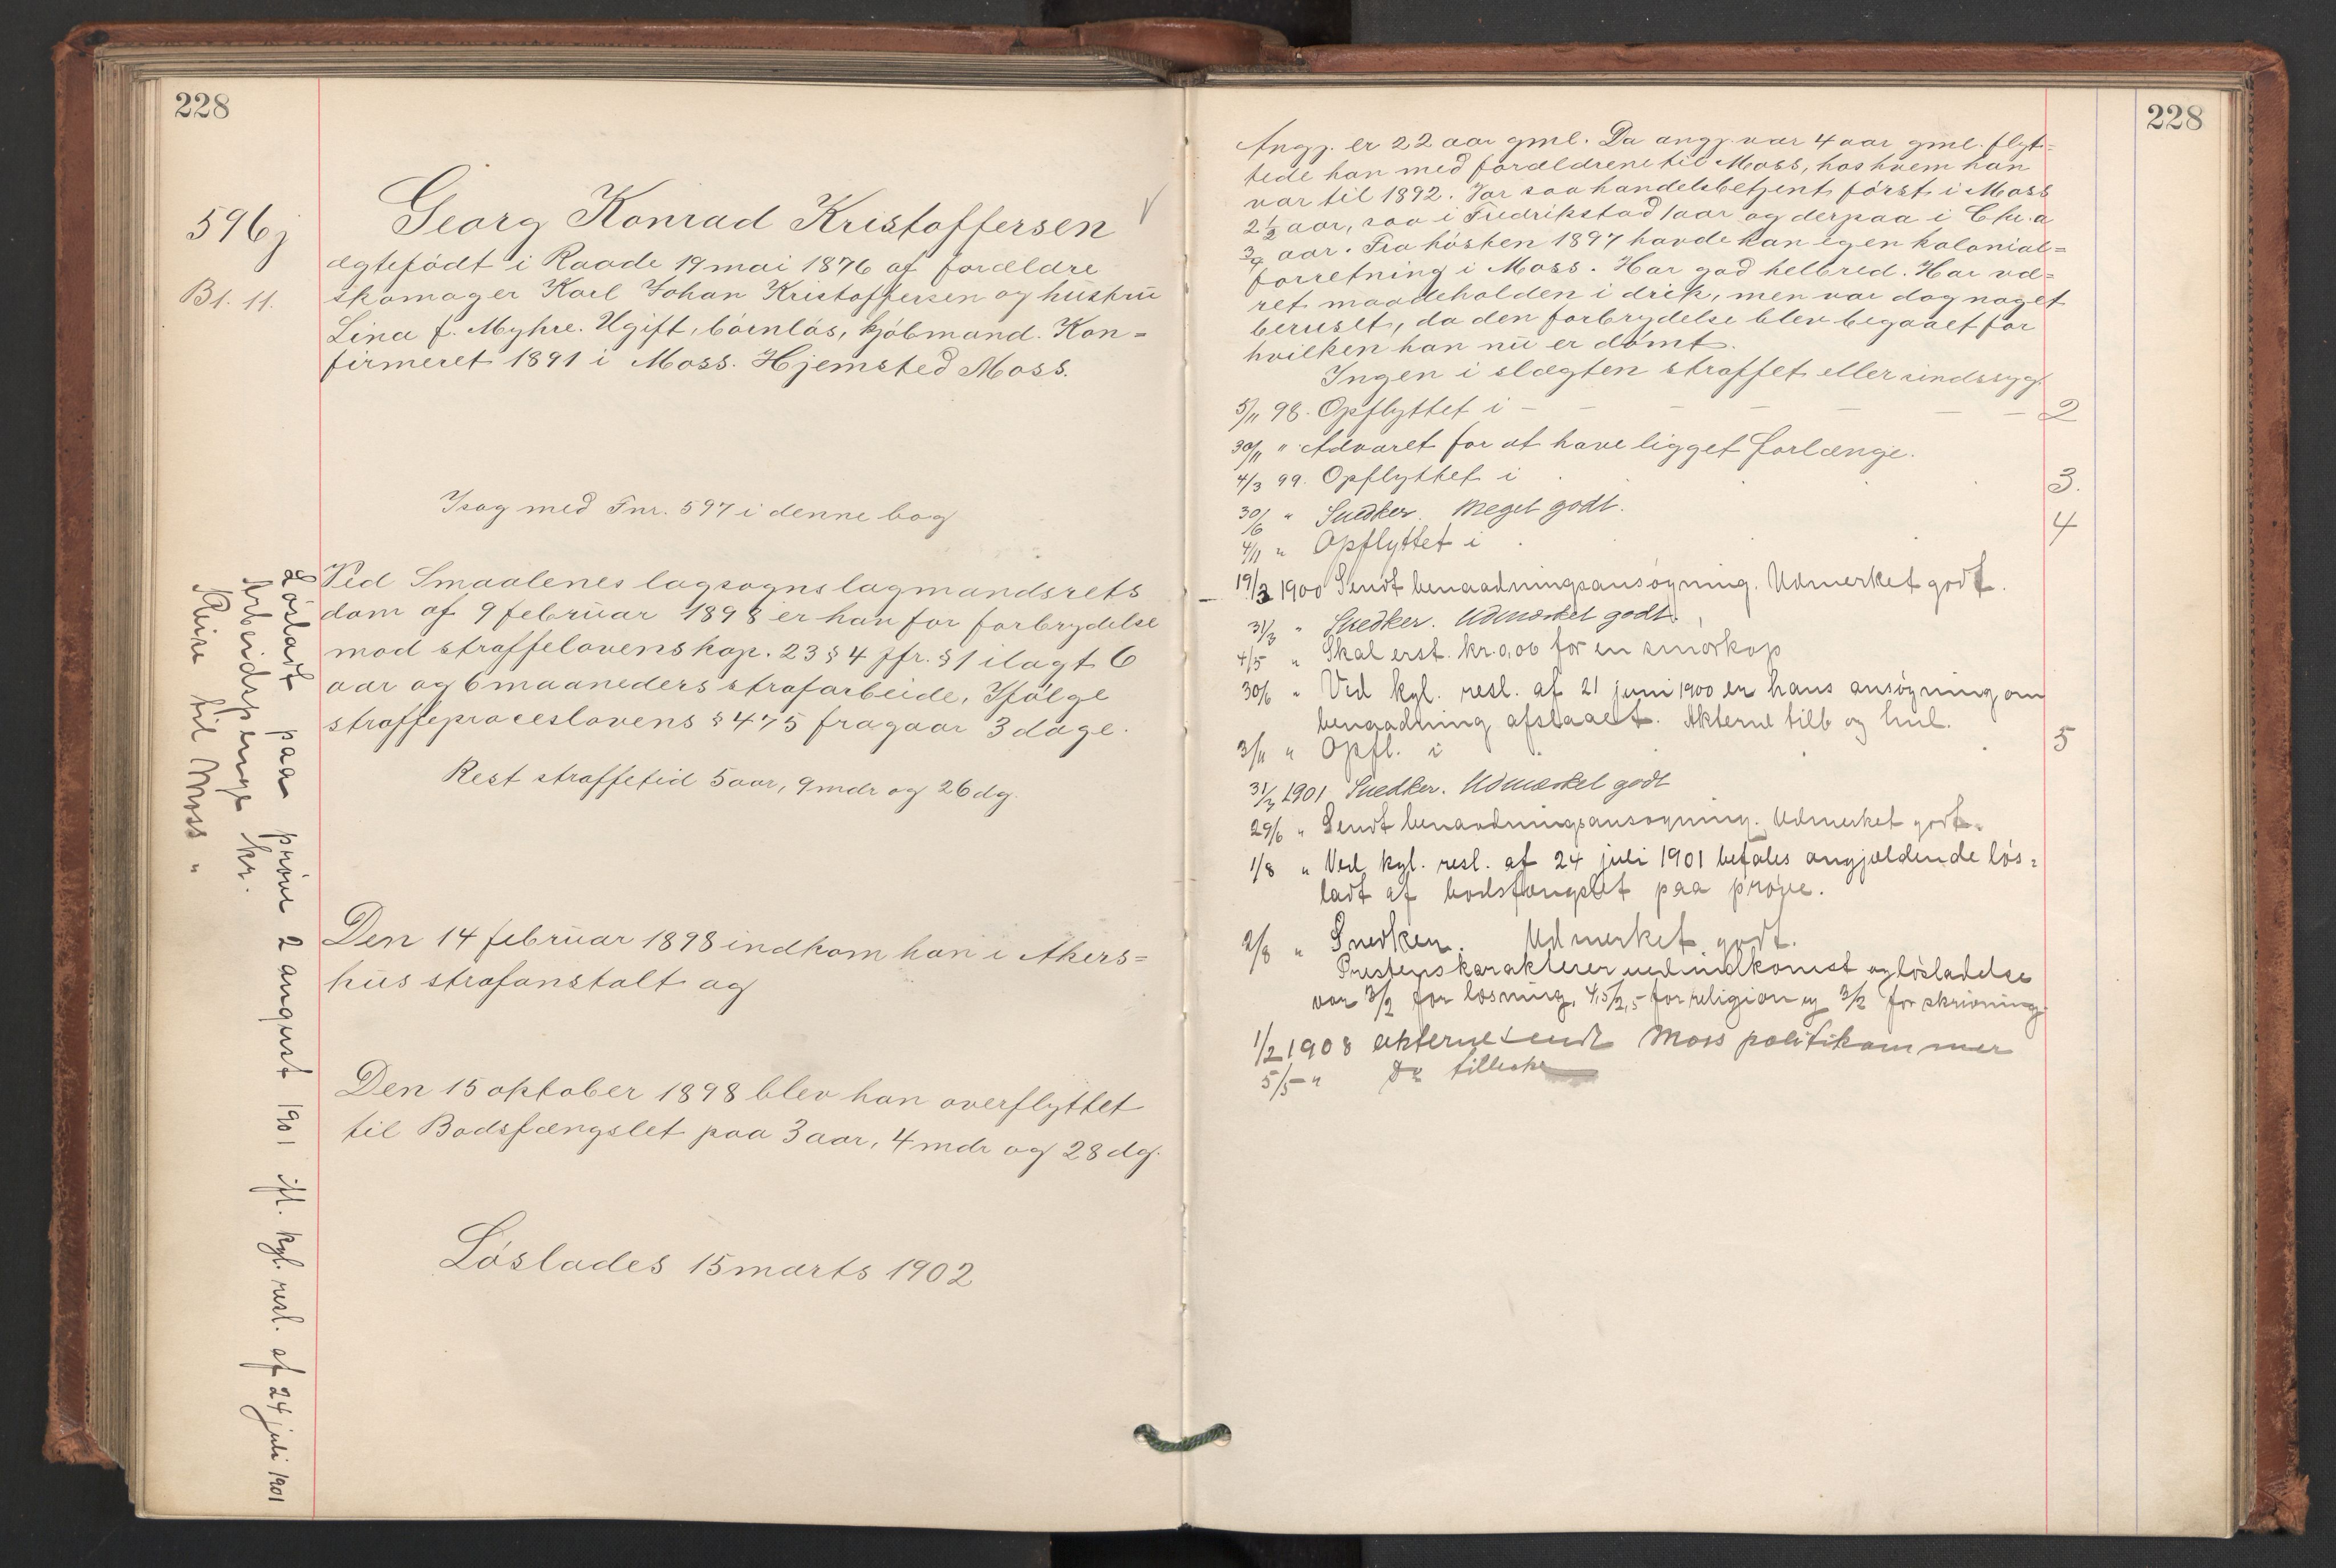 228
596j
Bl. 11.
Georg Konrad Kristoffersen
ægtefödt i Raade 19 mai 1876 af forældre
skomager Karl Johan Kristoffersen og hustru
Lina f. Myhre. Ugift, börnlös, kjöbmand. Kon=
firmeret 1891 i Moss. Hjemsted Moss.
Isag med Fnr. 597 i denne bog
Ved Smaalenes lagsogns lagmandsrets
dom af 9 februar 1898 er han for forbrydelse
mod straffelovens kap. 23 § 4 jfr. § 1 ilagt 6
aar og 6 maaneders strafarbeide. Ifölge
straffeproceslovens § 475 fragaar 3 dage.
Rest straffetid 5 aar, 9 mdr og 26 dg.
Den 14 februar 1898 indkom han i Akers=
hus strafanstalt og
Den 15 oktober 1898 blev han overflyttet
til Bodsfængslet paa 3 aar, 4 mdr og 28 dg.
Löslades 15 marts 1902
Lösladt paa pröve 2 august 1901 ifl. kgl. resl. af 24 juli 1901
Arbeidspenge kr.
Reise til Moss "
228
Angj. er 22 aar gml. Da angj. var 4 aar gml. flyt=
tede han med forældrene til Moss, hos hvem han
var til 1892. Var saa handelsbetjent först i Moss
2½ aar, saa i Fredrikstad 1 aar og derpaa i Chr.a
¾ aar. Fra hösten 1897 havde han egen kolonial=
forretning i Moss. Har god helbred. Har væ=
ret maadeholden i drik, men var dog noget
beruset, da den forbrydelse blev begaaet for
hvilken han nu er dömt.
Ingen i slægten straffet eller sindssyg.
5/11 98. Opflyttet i - - - - - - 2
30/11 " Advaret for at have ligget forlænge.
4/3 99. Opflyttet i 3.
30/6 " Snedker. Meget godt.
4/11 " Opflyttet i 4
19/3 1900 Sendt benaadningsansögning. Udmerket godt.
31/3 " Snedker. Udmærket godt.
4/5 " Skal erst. kr. 0,06 for en smörkop
30/6 " Ved kgl. resl. af 21 juni 1900 er hans ansögning om
benaadning afslaaet. Akterne tilb og hul.
3/11 " Opfl. i 5
31/3 1901 Snedker. Udmærket godt
29/6 " Sendt benaadningsansögning. Udmerket godt.
1/8 " Ved kgl. resl. af 24 juli 1901 befales angjældende lös=
ladt af bodsfængslet paa pröve.
2/8 " Snedker. Udmerket godt.
Prestens karakterer ved indkomst og lösladelse
var 3/2 for læsning, 4,5/2,5 for religion og 3/2 for skrivning.
1/2 1908 akterne sendt Moss politikammer
5/5 - "